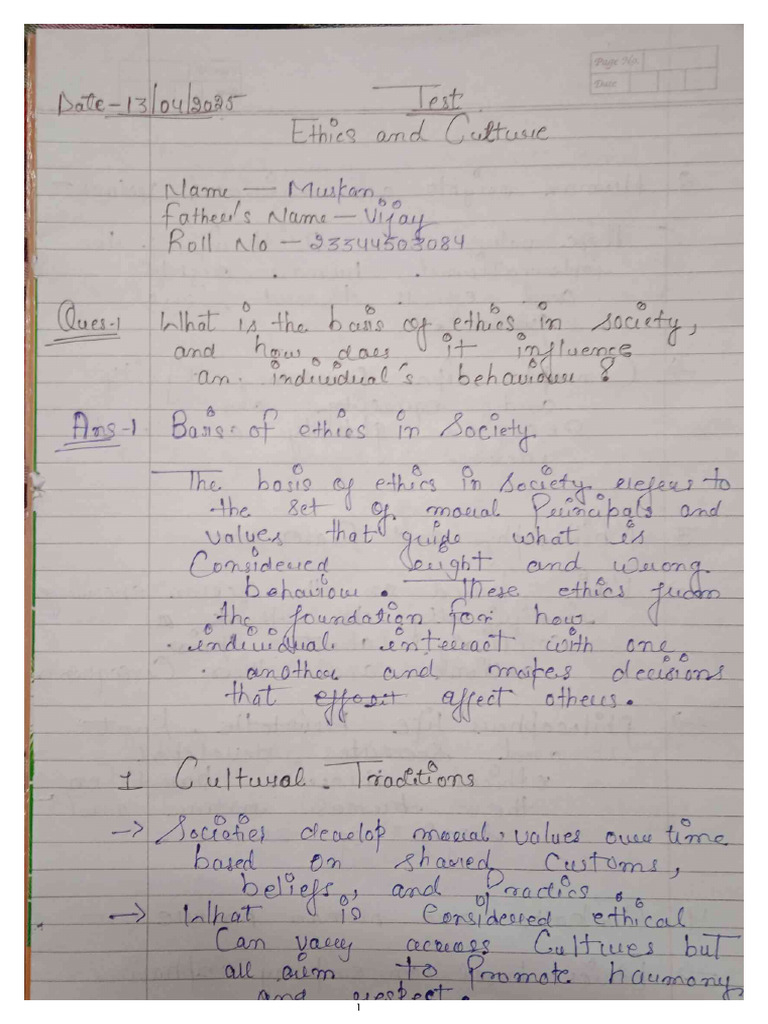 Page No.
Date
Date - 13/04/2025
Test
Ethics and Culture
Name — Muskan
Father's Name — Vijay
Roll No — 23344503084
Ques-1 What is the basis of ethics in society,
and how does it influence
an individual's behaviour ?
Ans-1 Basis of ethics in Society
The basis of ethics in Society refers to
the set of moral Principals and
values that guide what is
Considered right and wrong
behaviour. These ethics from
the foundation for how
individual interact with one
another and makes decisions
that effort affect others.
1 Cultural Traditions
→ Societies develop moral values over time
based on shared Customs,
beliefs, and Practics.
→ What is Considered ethical
Can vary across Cultures but
all aim to Promote haumony
and respect.
1